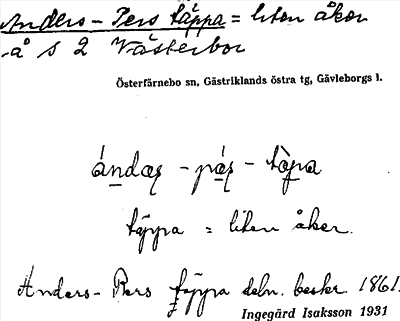 Anders-Pers täppa = liten åker
å s 2 Västerbor
Österfärnebo sn, Gästriklands östra tg, Gävleborgs l.
ándas - pás - tòpa
täppa = liten åker.
Anders-Pers täppa deln. beskr. 1861.
Ingegärd Isaksson 1931